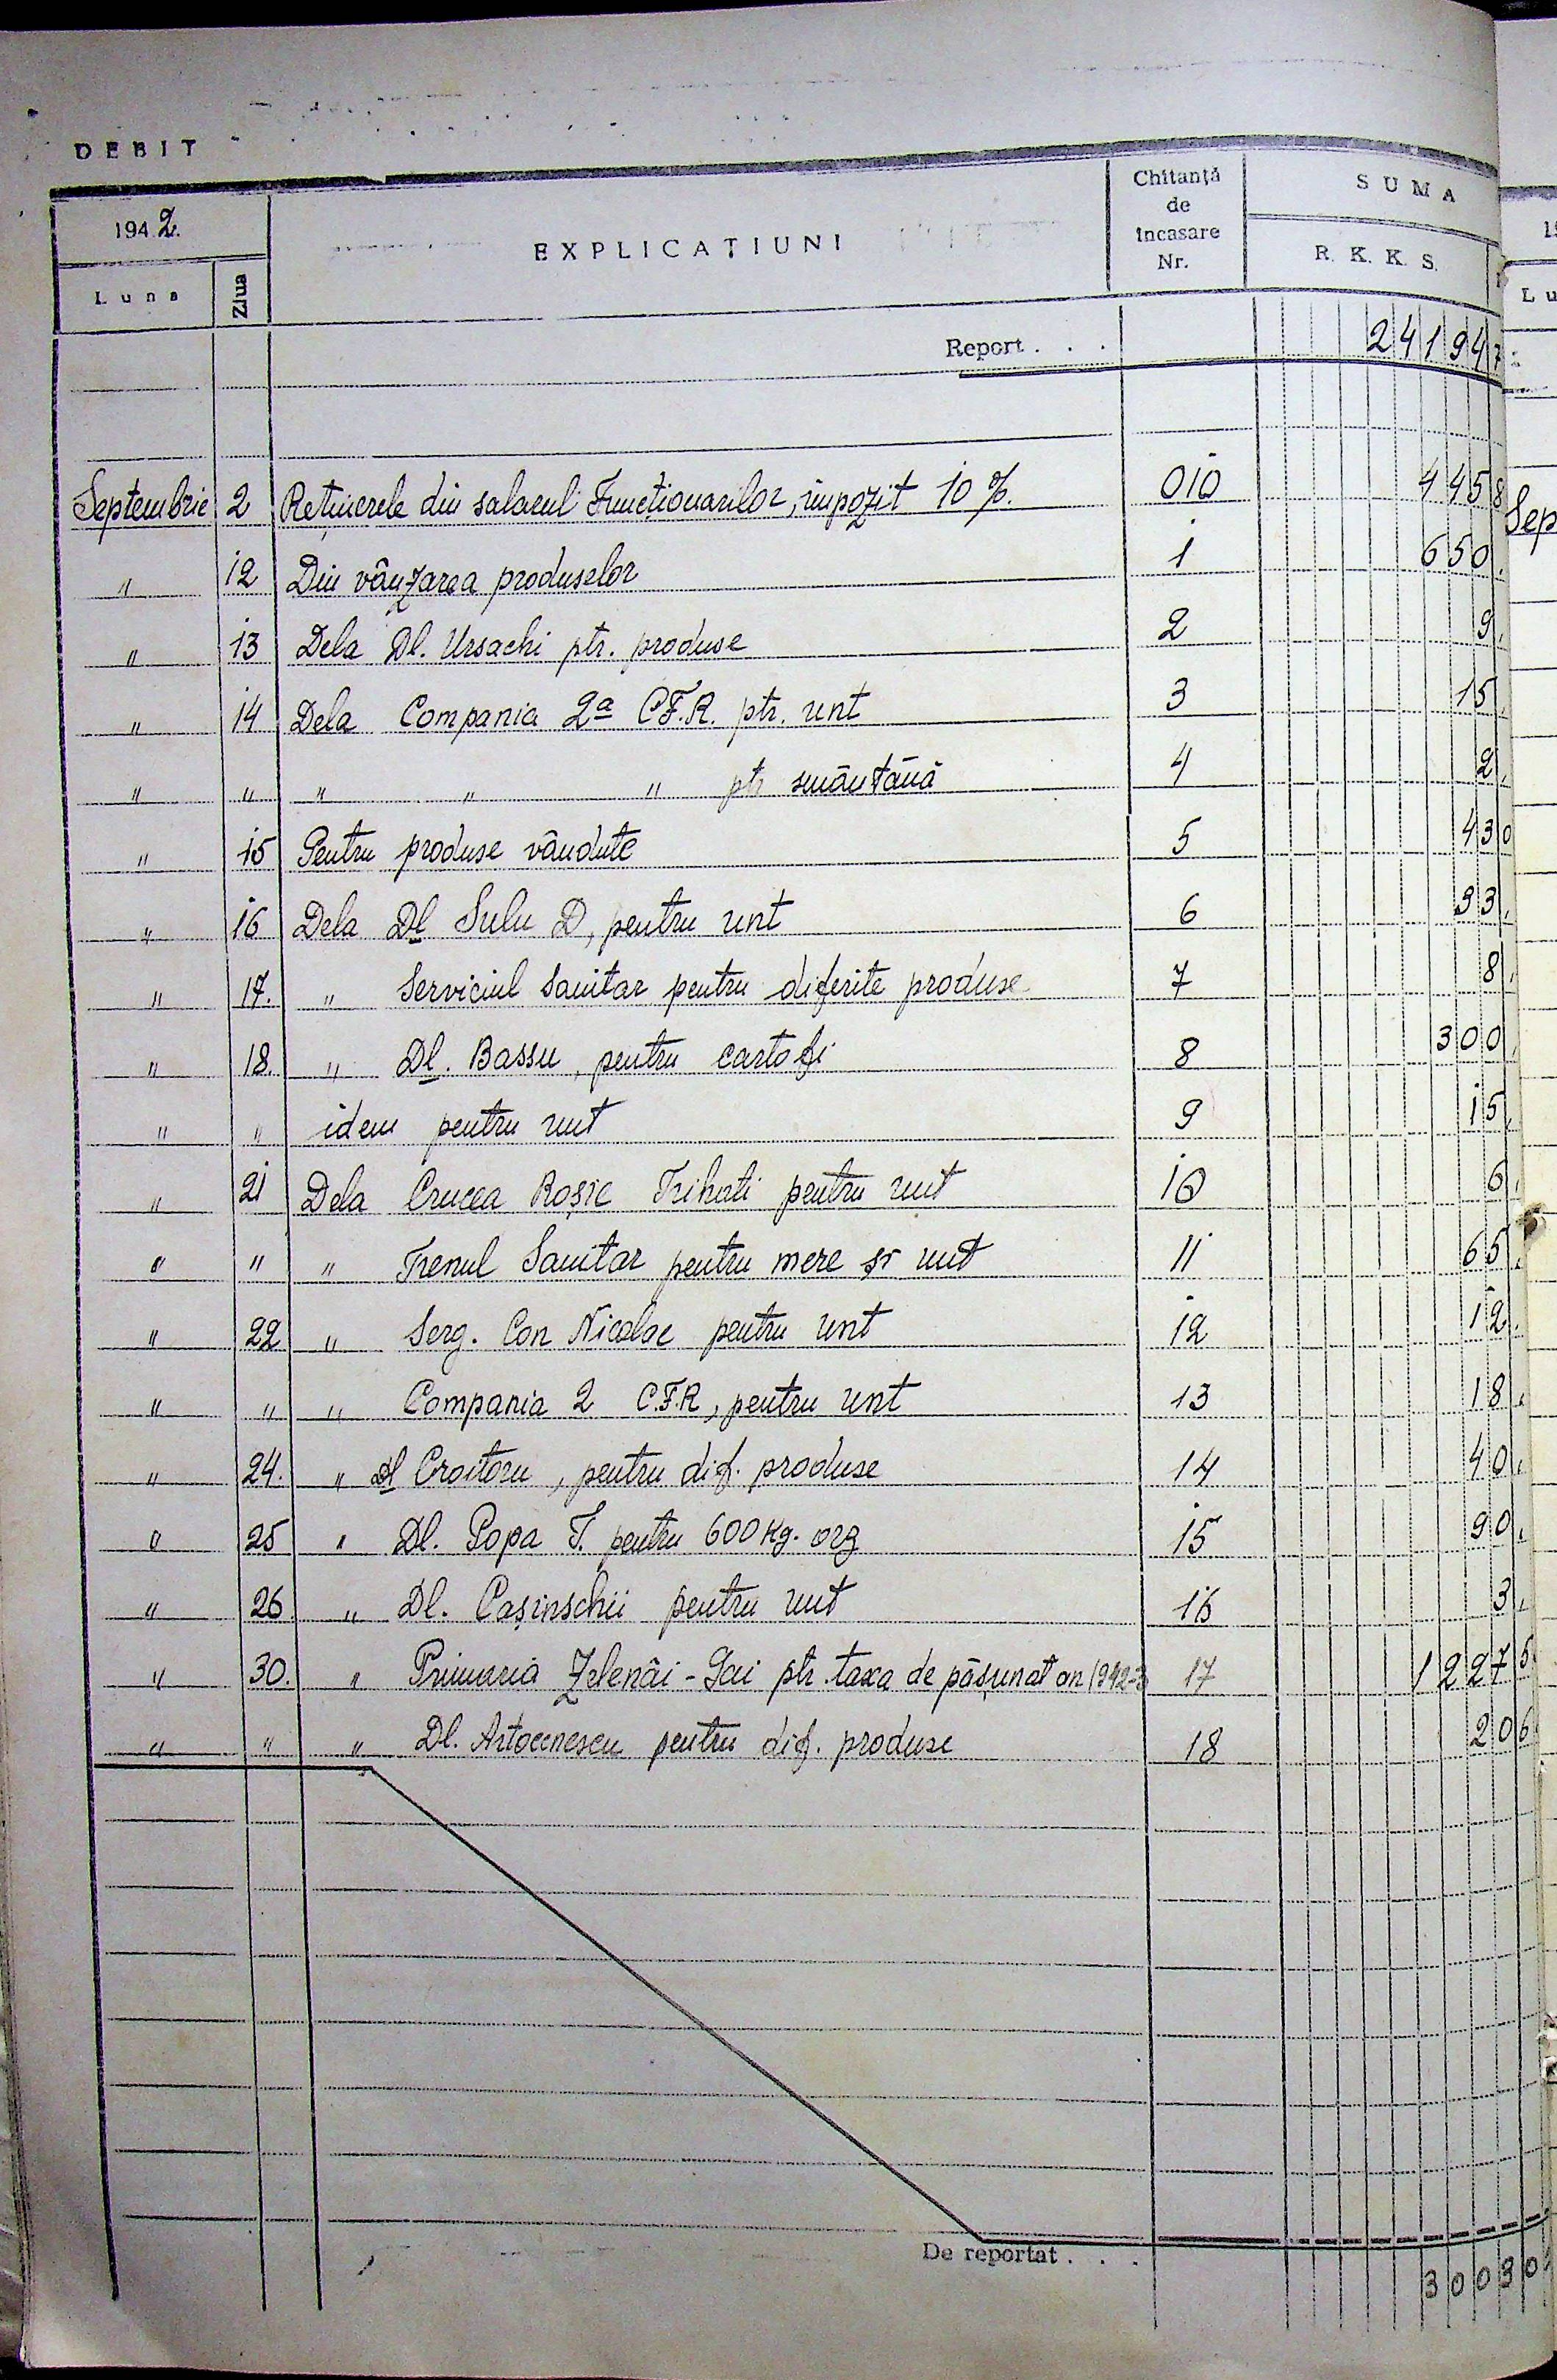 DEBIT
1942.
Luna Ziua EXPLICAȚIUNI Chitanță de încasare Nr. SUMA R. K. K. S.
Report . . . 241947
Septembrie 2 Reținerele din salarul Funcționarilor, impozit 10 %. 010 4458
" 12 Din vânzarea produselor 1 650.
" 13 Dela Dl. Ursachi ptr. produse 2 9.
" 14 Dela Compania 2a C.F.R. ptr. unt 3 15.
" " " " " ptr smântână 4 2.
" 15 Pentru produse vândute 5 430
" 16 Dela Dl Sulu D, pentru unt 6 93.
" 17. " Serviciul Sanitar pentru diferite produse 7 8.
" 18. " Dl. Bassu, pentru cartofi 8 300.
" " idem pentru unt 9 15.
" 21 Dela Crucea Roșie Trihati pentru unt 10 6.
" " " Trenul Sanitar pentru mere și unt 11 65.
" 22 " Serg. Con Nicolae pentru unt 12 12.
" " " Compania 2 C.F.R, pentru unt 13 18.
" 24. " Dl Croitoru, pentru dif. produse 14 40.
" 25 " Dl. Popa T. pentru 600 Kg. orz 15 90.
" 26 " Dl. Cașinschii pentru unt 16 3.
" 30. " Primaria Zelenâi-Gai ptr. taxa de pășunat an 1942-3 17 12275
" " " Dl. pentru dif. produse 18 206
De reportat . . . 30030
19
Lu
Sep